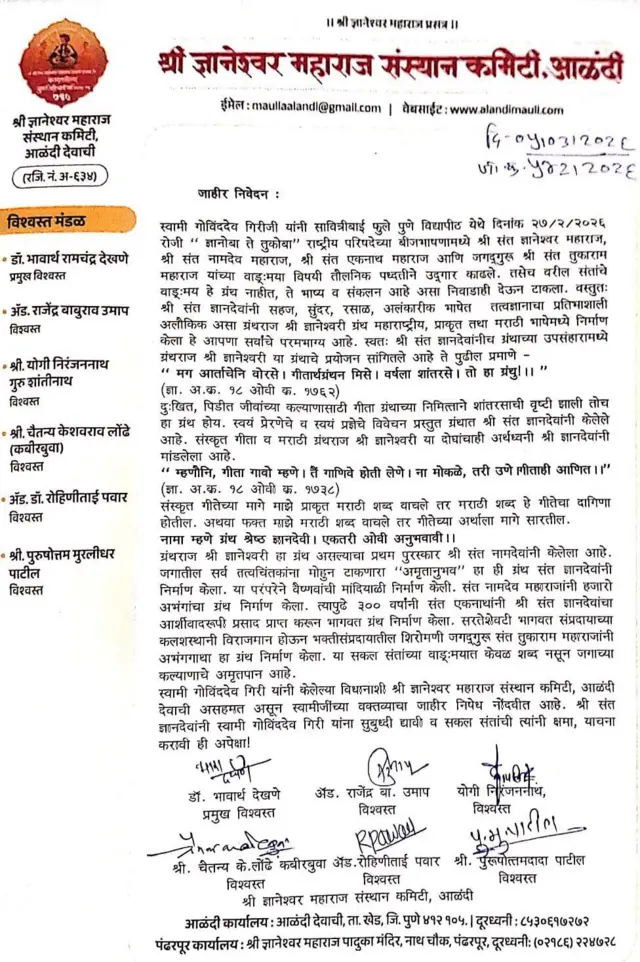 ।। श्री ज्ञानेश्वर महाराज प्रसन्न ।।
श्री ज्ञानेश्वर महाराज संस्थान कमिटी, आळंदी
ईमेल : maullaalandi@gmail.com | वेबसाईट : www.alandimauli.com
७५०
श्री ज्ञानेश्वर महाराज
संस्थान कमिटी,
आळंदी देवाची
(रजि. नं. अ-६३४)
दि-०५/०३/२०२६
जा. क्र. ५४२/२०२६
विश्वस्त मंडळ
• डॉ. भावार्थ रामचंद्र देखणे
प्रमुख विश्वस्त
• ॲड. राजेंद्र बाबुराव उमाप
विश्वस्त
• श्री. योगी निरंजननाथ
गुरु शांतीनाथ
विश्वस्त
• श्री. चैतन्य केशवराव लोंढे
(कबीरबुवा)
विश्वस्त
• ॲड. डॉ. रोहिणीताई पवार
विश्वस्त
• श्री. पुरुषोत्तम मुरलीधर
पाटील
विश्वस्त
जाहीर निवेदन :
स्वामी गोविंददेव गिरीजी यांनी सावित्रीबाई फुले पुणे विद्यापीठ येथे दिनांक २७/२/२०२६
रोजी “ ज्ञानोबा ते तुकोबा” राष्ट्रीय परिषदेच्या बीजभाषणामध्ये श्री संत ज्ञानेश्वर महाराज,
श्री संत नामदेव महाराज, श्री संत एकनाथ महाराज आणि जगद्गुरू श्री संत तुकाराम
महाराज यांच्या वाङ्:मया विषयी तौलनिक पध्दतीने उद्गार काढले. तसेच वरील संतांचे
वाङ्:मय हे ग्रंथ नाहीत, ते भाष्य व संकलन आहे असा निवाडाही देऊन टाकला. वस्तुतः
श्री संत ज्ञानदेवांनी सहज, सुंदर, रसाळ, अलंकारीक भाषेत तत्वज्ञानाचा प्रतिभाशाली
अलौकिक असा ग्रंथराज श्री ज्ञानेश्वरी ग्रंथ महाराष्ट्रीय, प्राकृत तथा मराठी भाषेमध्ये निर्माण
केला हे आपणा सर्वांचे परमभाग्य आहे. स्वतः श्री संत ज्ञानदेवांनीच ग्रंथाच्या उपसंहारामध्ये
ग्रंथराज श्री ज्ञानेश्वरी या ग्रंथाचे प्रयोजन सांगितले आहे ते पुढील प्रमाणे -
“ मग आर्ताचेनि वोरसे। गीतार्थग्रंथन मिसे। वर्षला शांतरसे। तो हा ग्रंथु।। ”
(ज्ञा. अ.क्र. १८ ओवी क्र. १७६२)
दुःखित, पिडीत जीवांच्या कल्याणासाठी गीता ग्रंथाच्या निमित्ताने शांतरसाची वृष्टी झाली तोच
हा ग्रंथ होय. स्वयं प्रेरणेचे व स्वयं प्रज्ञेचे विवेचन प्रस्तुत ग्रंथात श्री संत ज्ञानदेवांनी केलेले
आहे. संस्कृत गीता व मराठी ग्रंथराज श्री ज्ञानेश्वरी या दोघांचाही अर्थध्वनी श्री ज्ञानदेवांनी
मांडलेला आहे.
“ म्हणौनि, गीता गावो म्हणे। तैं गाणिवे होती लेणे। ना मोकळे, तरी उणे। गीताही आणित।।”
(ज्ञा. अ.क्र. १८ ओवी क्र. १७३८)
संस्कृत गीतेच्या मागे माझे प्राकृत मराठी शब्द वाचले तर मराठी शब्द हे गीतेचा दागिणा
होतील. अथवा फक्त माझे मराठी शब्द वाचले तर गीतेच्या अर्थाला मागे सारतील.
नामा म्हणे ग्रंथ श्रेष्ठ ज्ञानदेवी। एकतरी ओवी अनुभवावी।।
ग्रंथराज श्री ज्ञानेश्वरी हा ग्रंथ असल्याचा प्रथम पुरस्कार श्री संत नामदेवांनी केलेला आहे.
जगातील सर्व तत्वचिंतकांना मोहुन टाकणारा “अमृतानुभव” हा ही ग्रंथ संत ज्ञानदेवांनी
निर्माण केला. या परंपरेने वैष्णवांची मांदियाळी निर्माण केली. संत नामदेव महाराजांनी हजारो
अभंगांचा ग्रंथ निर्माण केला. त्यापुढे ३०० वर्षांनी संत एकनाथांनी श्री संत ज्ञानदेवांचा
आर्शीवादरूपी प्रसाद प्राप्त करून भागवत ग्रंथ निर्माण केला. सरतेशेवटी भागवत संप्रदायाच्या
कलशस्थानी विराजमान होऊन भक्तीसंप्रदायातील शिरोमणी जगद्गुरू संत तुकाराम महाराजांनी
अभंगगाथा हा ग्रंथ निर्माण केला. या सकल संतांच्या वाङ्:मयात केवळ शब्द नसून जगाच्या
कल्याणाचे अमृतपान आहे.
स्वामी गोविंददेव गिरी यांनी केलेल्या विधानाशी श्री ज्ञानेश्वर महाराज संस्थान कमिटी, आळंदी
देवाची असहमत असून स्वामीजींच्या वक्तव्याचा जाहीर निषेध नोंदवीत आहे. श्री संत
ज्ञानदेवांनी स्वामी गोविंददेव गिरी यांना सुबुध्दी द्यावी व सकल संतांची त्यांनी क्षमा, याचना
करावी ही अपेक्षा!
डॉ. भावार्थ देखणे ॲड. राजेंद्र बा. उमाप योगी निरंजननाथ,
प्रमुख विश्वस्त विश्वस्त विश्वस्त
RPawar
पु.मु.पाटील
श्री. चैतन्य के.लोंढे कबीरबुवा ॲड.रोहिणीताई पवार श्री. पुरूषोत्तमदादा पाटील
विश्वस्त विश्वस्त विश्वस्त
श्री ज्ञानेश्वर महाराज संस्थान कमिटी, आळंदी
आळंदी कार्यालय : आळंदी देवाची, ता. खेड, जि. पुणे ४१२ १०५. | दूरध्वनी : ८५३०६१७२७२
पंढरपूर कार्यालय : श्री ज्ञानेश्वर महाराज पादुका मंदिर, नाथ चौक, पंढरपूर, दूरध्वनी: (०२१८६) २२४७२८